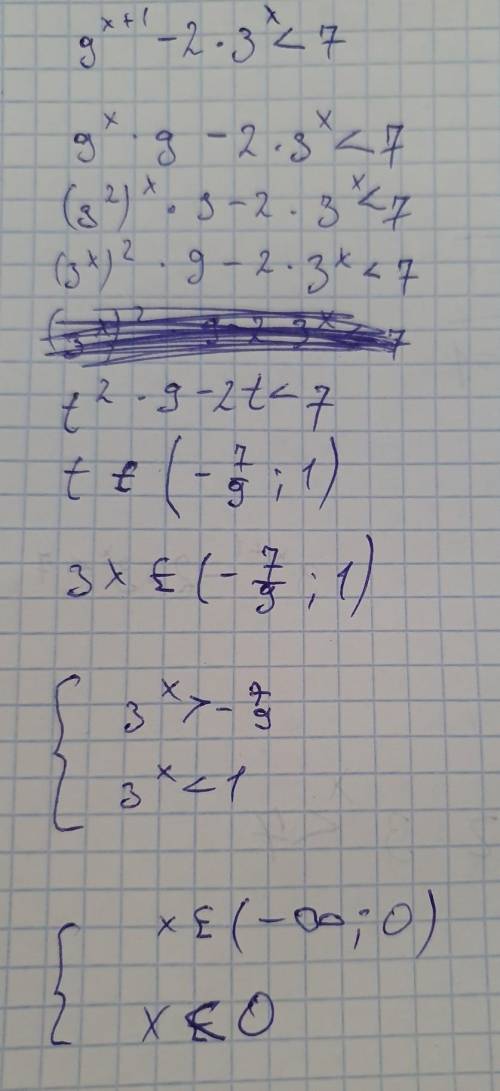 9^{x+1} - 2 · 3^x < 7
9^x · 9 - 2 · 3^x < 7
(3^2)^x · 9 - 2 · 3^x < 7
(3^x)^2 · 9 - 2 · 3^x < 7
t^2 · 9 - 2t < 7
t ∈ (-7/9 ; 1)
3^x ∈ (-7/9 ; 1)
{ 3^x > -7/9
3^x < 1
{ x ∈ (-∞; 0)
x < 0